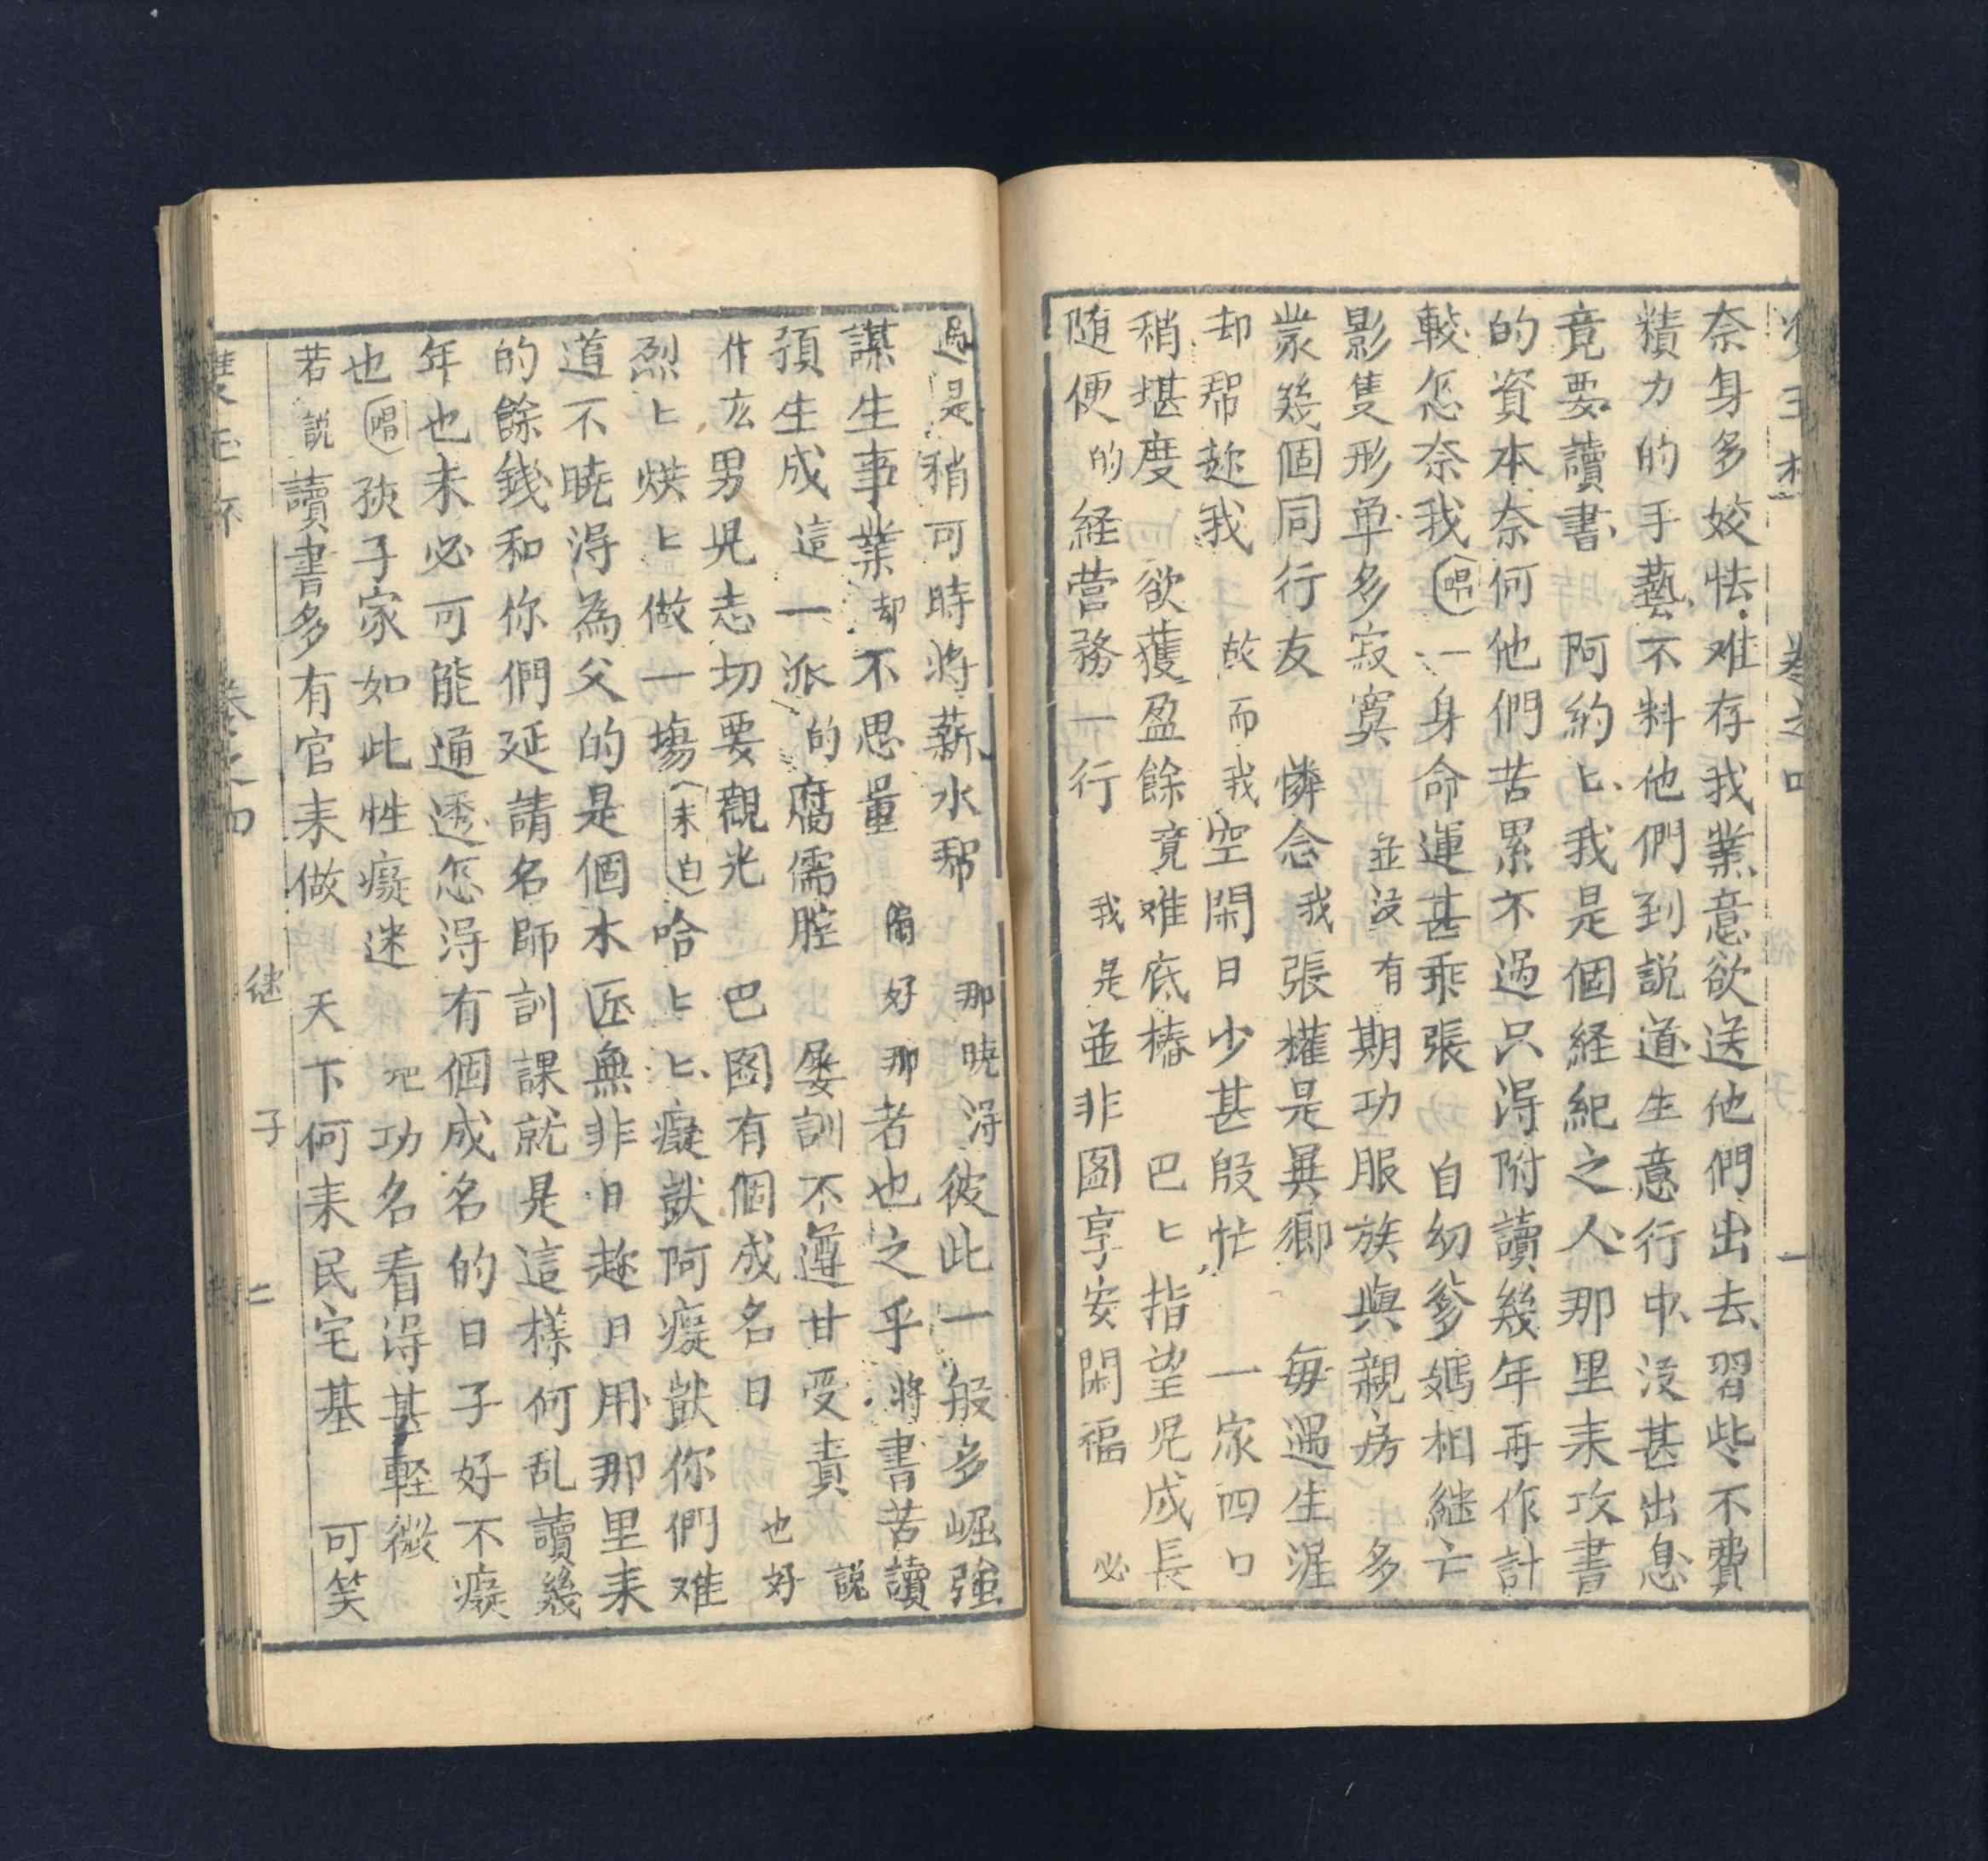 奈身多姣怯难存我業意欲送他們出去習些不費
積力的手藝不料他們到説道生意行中没甚出息
竟要讀書阿約匕我是個経紀之人那里耒攻書
的資本奈何他們苦累不过只得附讀幾年再作計
較怎奈我唱一身命運甚乖張自幼爹媽相継亡
影隻形单多寂寞並没有期功服族與親房多
蒙幾個同行友憐念我張權是異鄉每遇生涯
却帮趂我故而我空閑日少甚般忙一家四口
稍堪度欲獲盈餘竟难底樁巴匕指望児成長
随便的経营務一行我是並非圖享安閑福必
過是稍可時將薪水帮那曉得彼此一般多崛強
謀生事業却不思量偏好那者也之乎將書苦讀
預生成這一派的腐儒腔屡訓不遵甘受責説
什庅男児志切要觀光巴圖有個成名日也好
烈匕烘匕做一塲耒白哈匕匕癡獃阿癡獃你們难
道不曉得為父的是個木匠無非日趂日用那里耒
的餘錢和你們延請名師訓課就是這樣何乱讀幾
年也未必可能通透怎得有個成名的日子好不癡
也唱孩子家如此性癡迷把功名看得甚輕微
若説讀書多有官耒做天下何耒民宅基可笑
雙玉杯 卷之四 継子 二